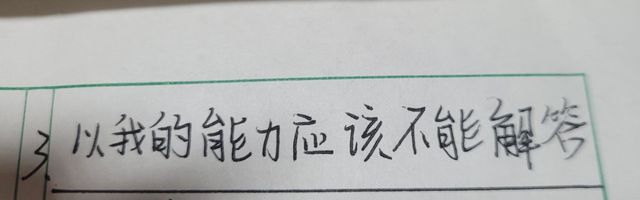 3. 以我的能力应该不能解答